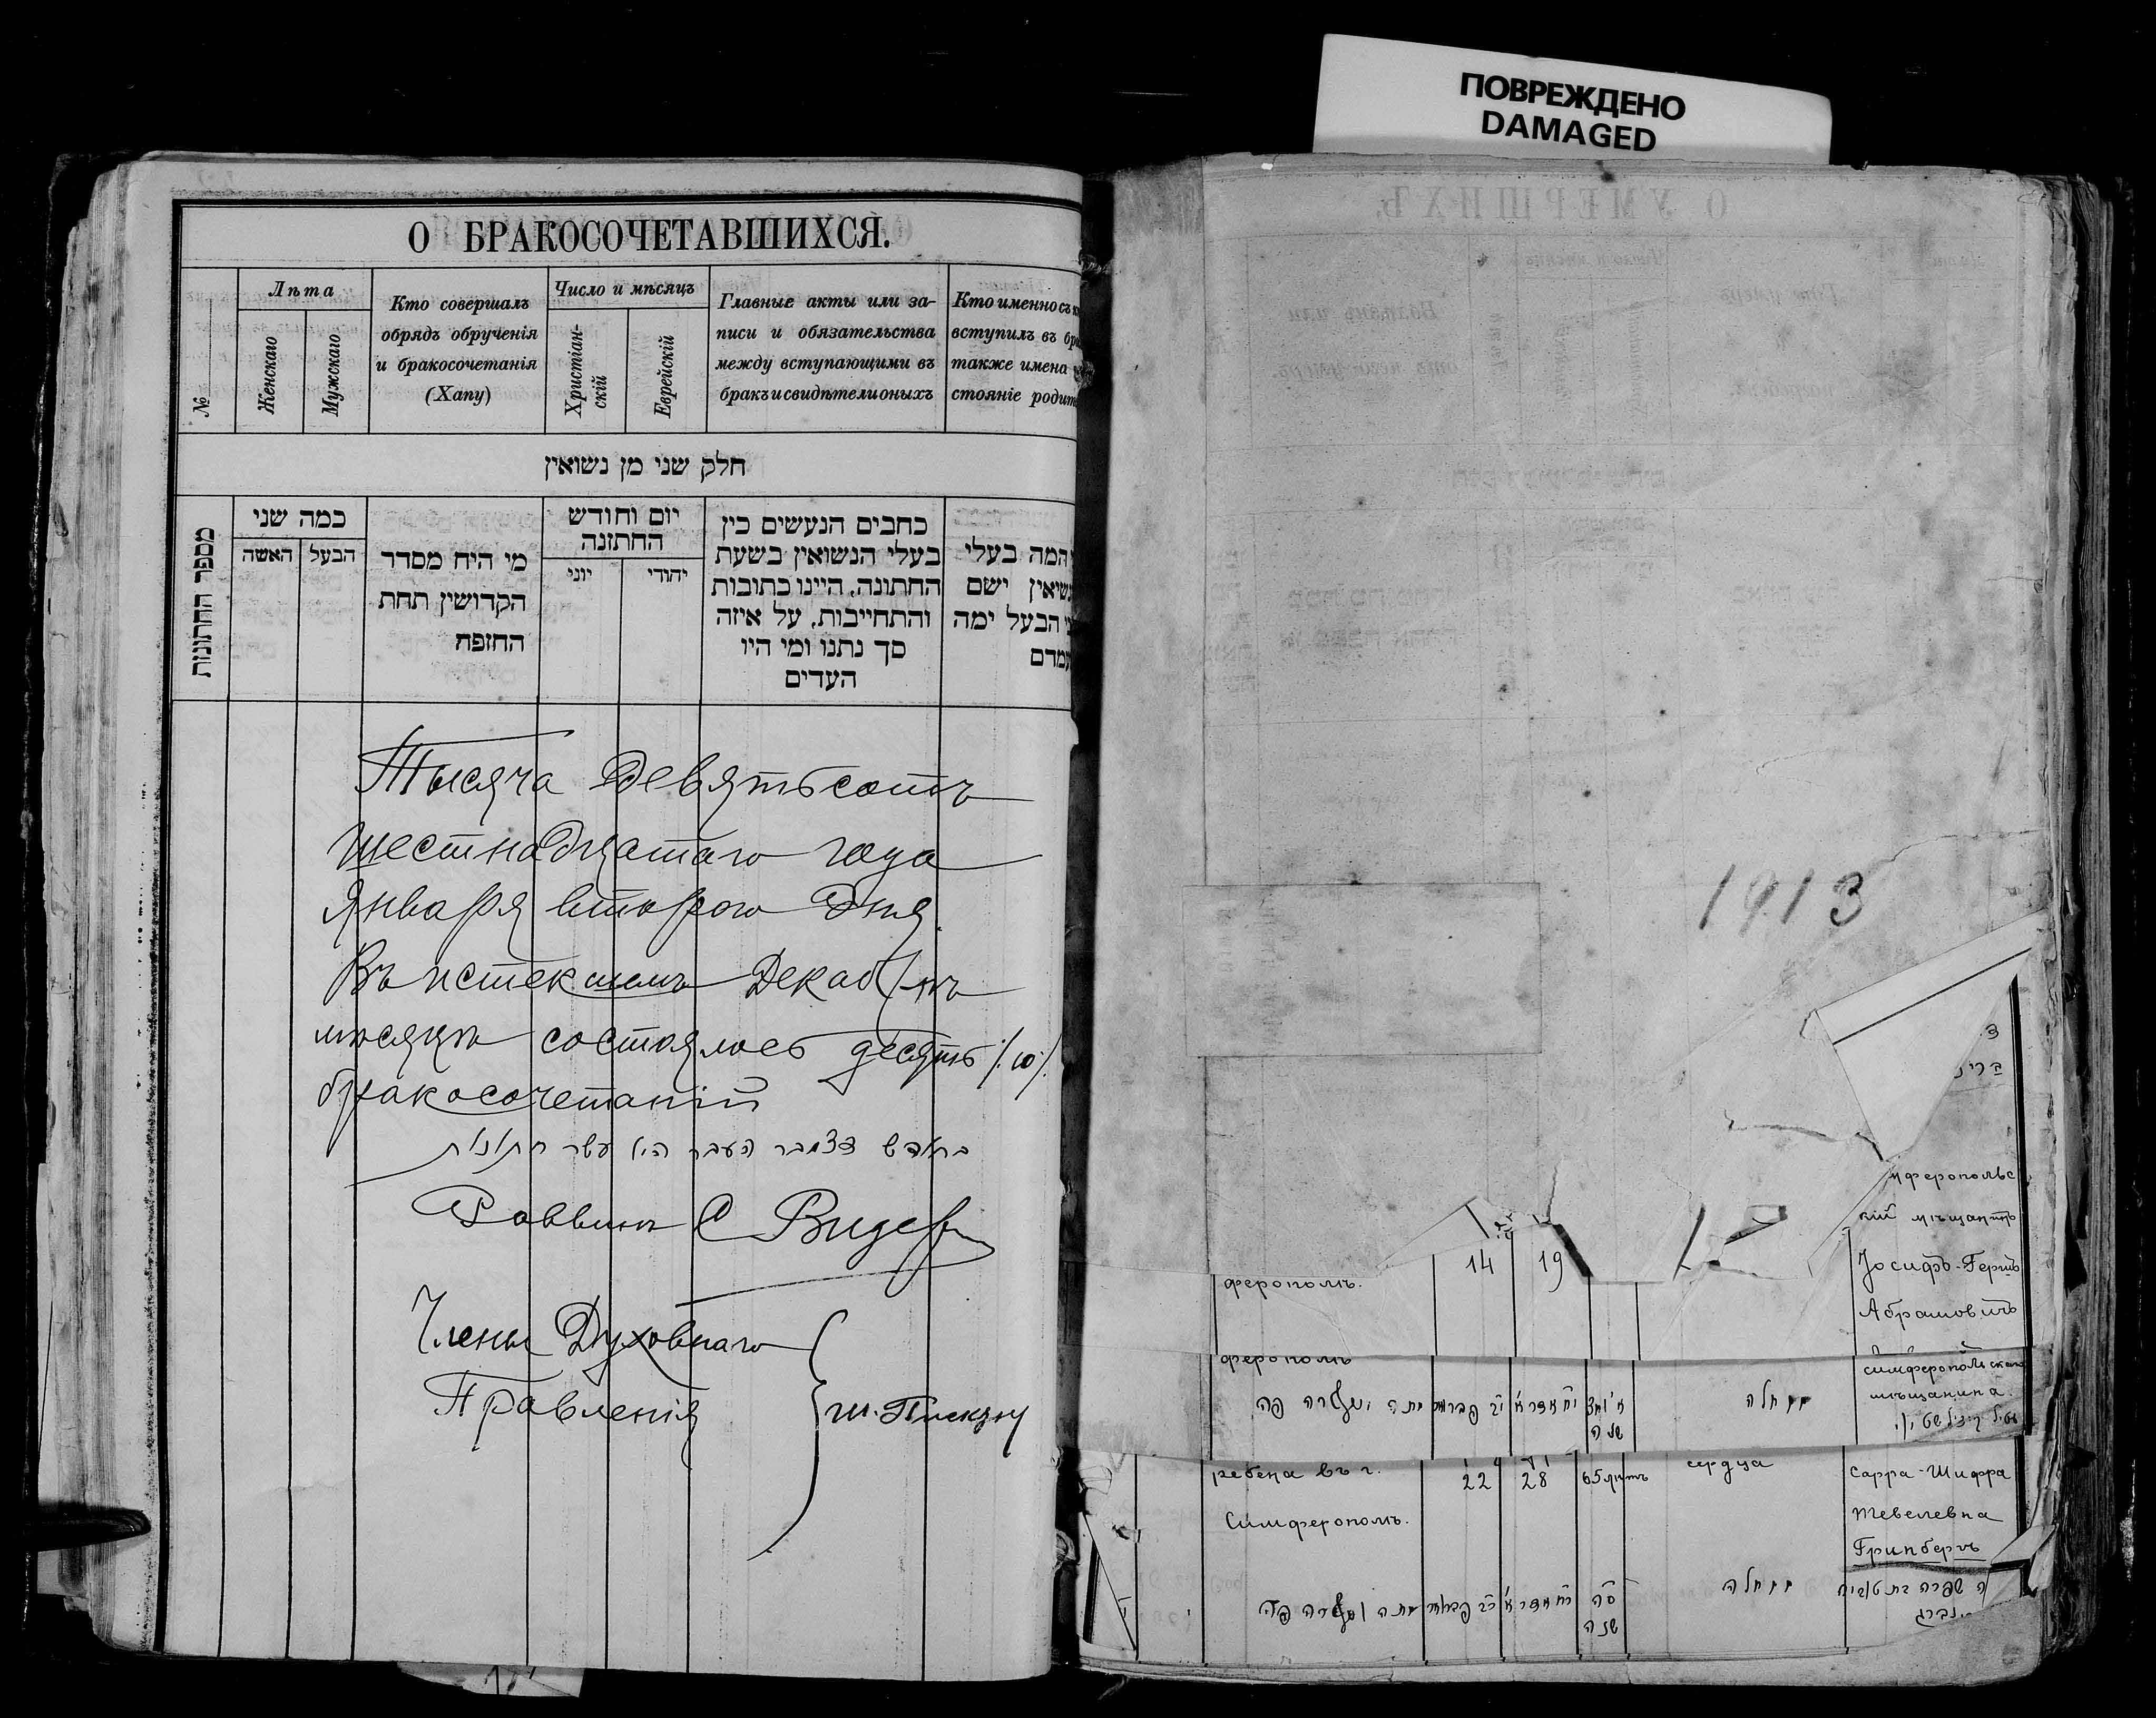 ПОВРЕЖДЕНО
DAMAGED
О БРАКОСОЧЕТАВШИХСЯ.
№
Лѣта
Женскаго
Мужскаго
Кто совершалъ
обрядъ обрученія
и бракосочетанія
(Хапу)
Число и мѣсяцъ
Христіан-
скій
Еврейскій
Главные акты или за-
писи и обязательства
между вступающими въ
бракъ и свидѣтели оныхъ
Кто именно съ к
вступилъ въ бр
также имена
стояніе родит
חלק שני מן נשואין
מספר החתונות
כמה שני
האשה
הבעל
מי היח מסדר
הקדושין תחת
החופח
יום וחודש
החתונה
יוני
יהודי
כחבים הנעשים כין
בעלי הנשואין בשעת
החתונה, היינו כתובות
והתחייבות, על איזה
סך נתנו ומי היו
העדים
המה בעלי
נשיאין ישם
הבעל ימה
עמדם
Тысяча девятьсотъ
шестнадцатаго года
Января второго дня.
Въ истекшемъ Декабрѣ
мѣсяцѣ состоялось десять /.10/.
бракосочетаній
בחודש דצמבר העבר היו עשר חתונות
Раввинъ С Видер
Члены Духовнаго
Правленія
О УМЕРШИХЪ
1913
мферопольс
кій мѣщанинъ
Іосифъ-Гершъ
Абрамовичъ
ферополѣ.
14
19
ферополѣ
симферопольскаго
мѣщанина.
מחלה
שנה
ребена въ г.
22
28
65 лѣтъ
сердца
Сарра-Шифра
Симферополѣ.
Тевелевна
Гринбергъ
מחלה
סה
שנה